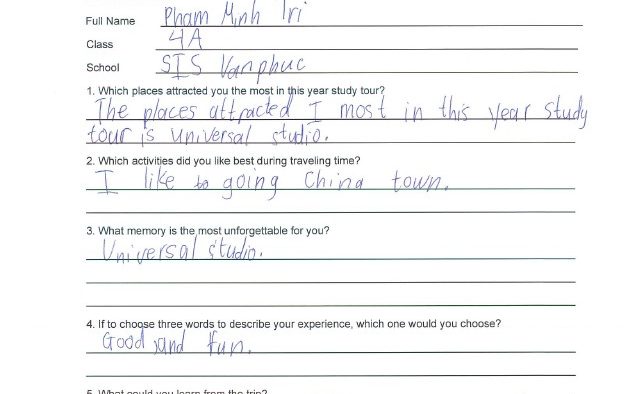 Full Name Pham Minh Tri
Class 4A
School SIS Vanphuc
1. Which places attracted you the most in this year study tour?
The places attracted I most in this year study
tour is Universal studio.
2. Which activities did you like best during traveling time?
I like to going China town.
3. What memory is the most unforgettable for you?
Universal studio.
4. If to choose three words to describe your experience, which one would you choose?
Good and fun.
5. What could you learn from the trip?